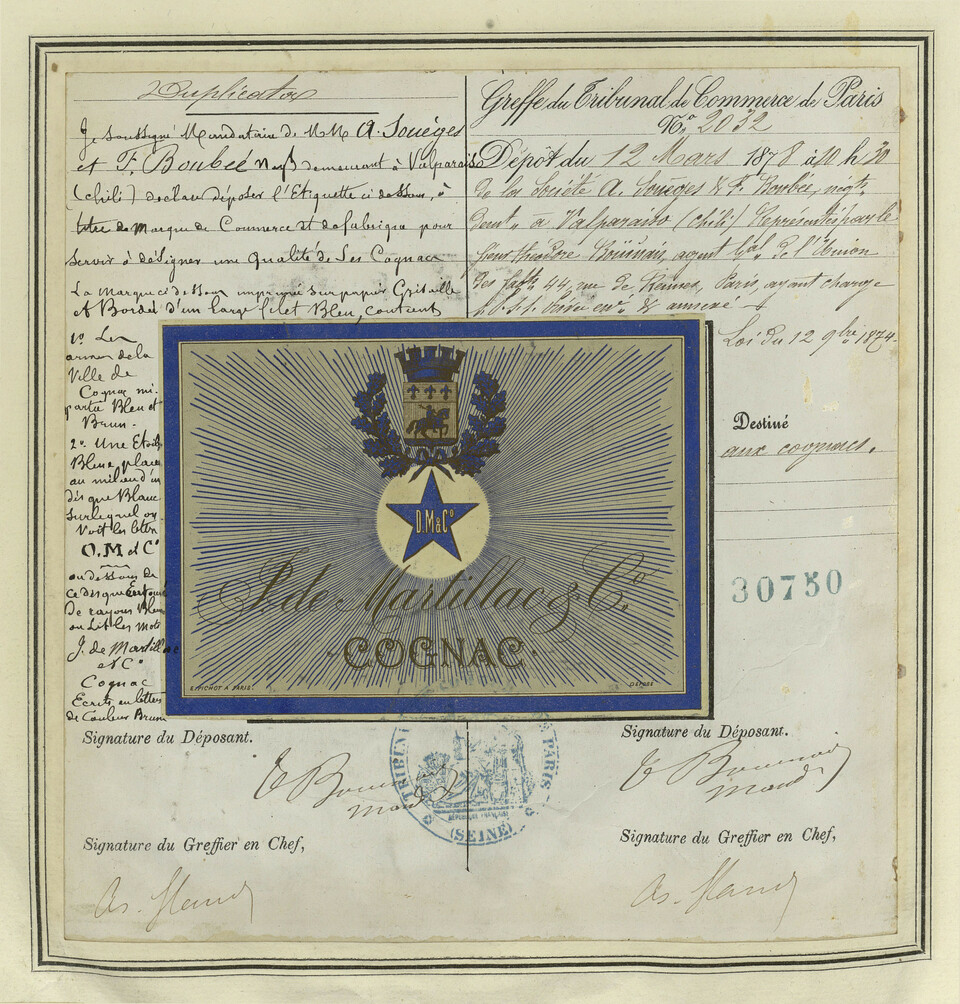 Duplicata
Je soussigné Mandataire de MM A. Souèges
et F. Boubée Negts demeurant à Valparaiso
(Chili) declare déposer l'Etiquette ci dessous, à
titre de Marque de Commerce et de fabrique pour
servir à désigner une Qualité de Ses Cognacs
La Marque ci dessous imprimée sur papier Grisaille
et Bordée d'un large filet Bleu, contient
1o Les
armes de la
Ville de
Cognac mi-
partie Bleu et
Brun.
2o Une Etoile
Bleue placée
au milieu d'un
disque Blanc
sur lequel on
voit les lettres
O.M et Co
au dessous de
ce disque Entouré
De rayons Bleus
on Lit les mots
J. de Martillac
et Co
Cognac
Ecrits en lettres
de Couleur Brune
Greffe du Tribunal de Commerce de Paris
No 2032
Dépôt du 12 Mars 1878 à 10 h 30
de la Société A. Souèges & F. Boubée, négts
demt à Valparaiso (Chili) Représentés par le
sieur théodore agent gal de l'Union
des fabts 44, rue de Rennes, Paris, ayant charge
& annexé
Loi du 12 9bre 1874.
Destiné
aux cognacs.
30750
O.M&Co
J. de Martillac & Co.
COGNAC
E. PICHOT A PARIS.
DÉPOSÉ
Signature du Déposant.
Signature du Déposant.
TRIBUNAL DE PARIS
RÉPUBLIQUE FRANÇAISE
(SEINE)
Signature du Greffier en Chef,
Signature du Greffier en Chef,